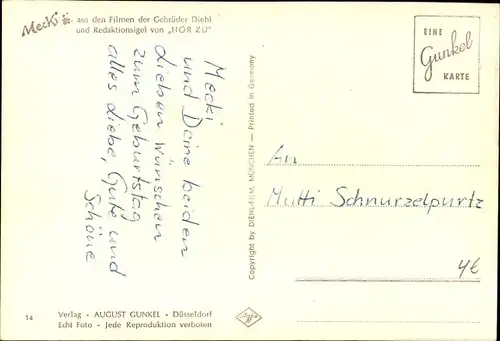 Mecki aus den Filmen der Gebrüder Diehl
und Redaktionsigel von „HÖR ZU“
EINE
Gunkel
KARTE
Mecki
und Deine beiden
Lieben wünschen
zum Geburtstag
alles Liebe, Gute und
Schöne
Copyright by DIEHL-FILM, MÜNCHEN — Printed in Germany
An
Mutti Schnurzelpurtz
14
Verlag - AUGUST GUNKEL - Düsseldorf
Echt Foto - Jede Reproduktion verboten